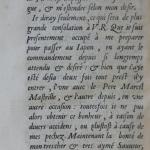 & me semble selon mon desir.
Ie diray seulement, ce qui sera de plus
grande consolation à V.R. Que ie suis
presentement occupé à me preparer
pour passer au Iapon, en ayant le
commandement depuis si longtemps
attendu & desiré : & bien que i'aye
esté dessia deux fois tout prest d'y
entrer, l'vne auec le Pere Marcel
Mastrille, & l'autre depuis, en vne
autre occasion : toutesfois ie ne pus
alors obtenir ce bonheur, à raison de
diuers accidens, ou plustost à cause de
mes pechez. Maintenant la bonté de
mon tres-cher & tres aymé Sauueur,